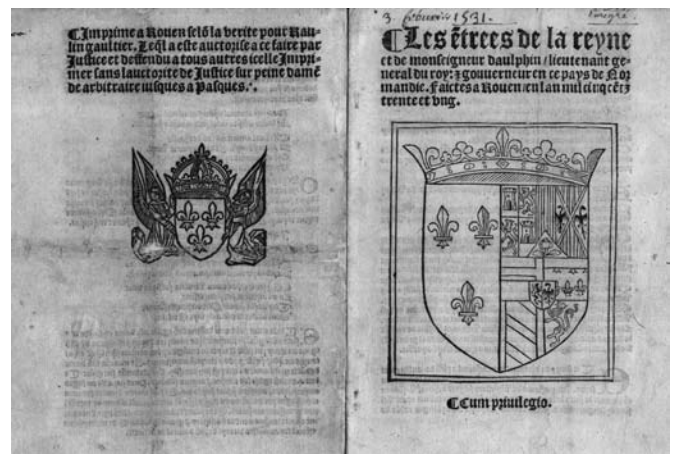 ¶Imprime a Rouen selõ la verite pour Rau-
lin gaultier. Leq̃l a este auctorise a ce faire par
Justice et deffendu a tous autres icelle Impri-
mer sans lauctorite de Justice sur peine damẽ
de arbitraire iusques a Pasques.
3. februarii 1531.
¶Les ẽtrees de la reyne
et de monseigneur daulphin / lieutenant ge-
neral du roy: ⁊ gouuerneur en ce pays de Nor
mandie. Faictes a Rouen / en lan mil cinq cẽt ⁊
trente et vng.
¶Cum priuilegio.